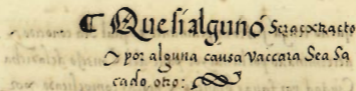 ¶ Que si alguno se ha extracto
O por alguna causa vaccara Sea Sa
cado otro: